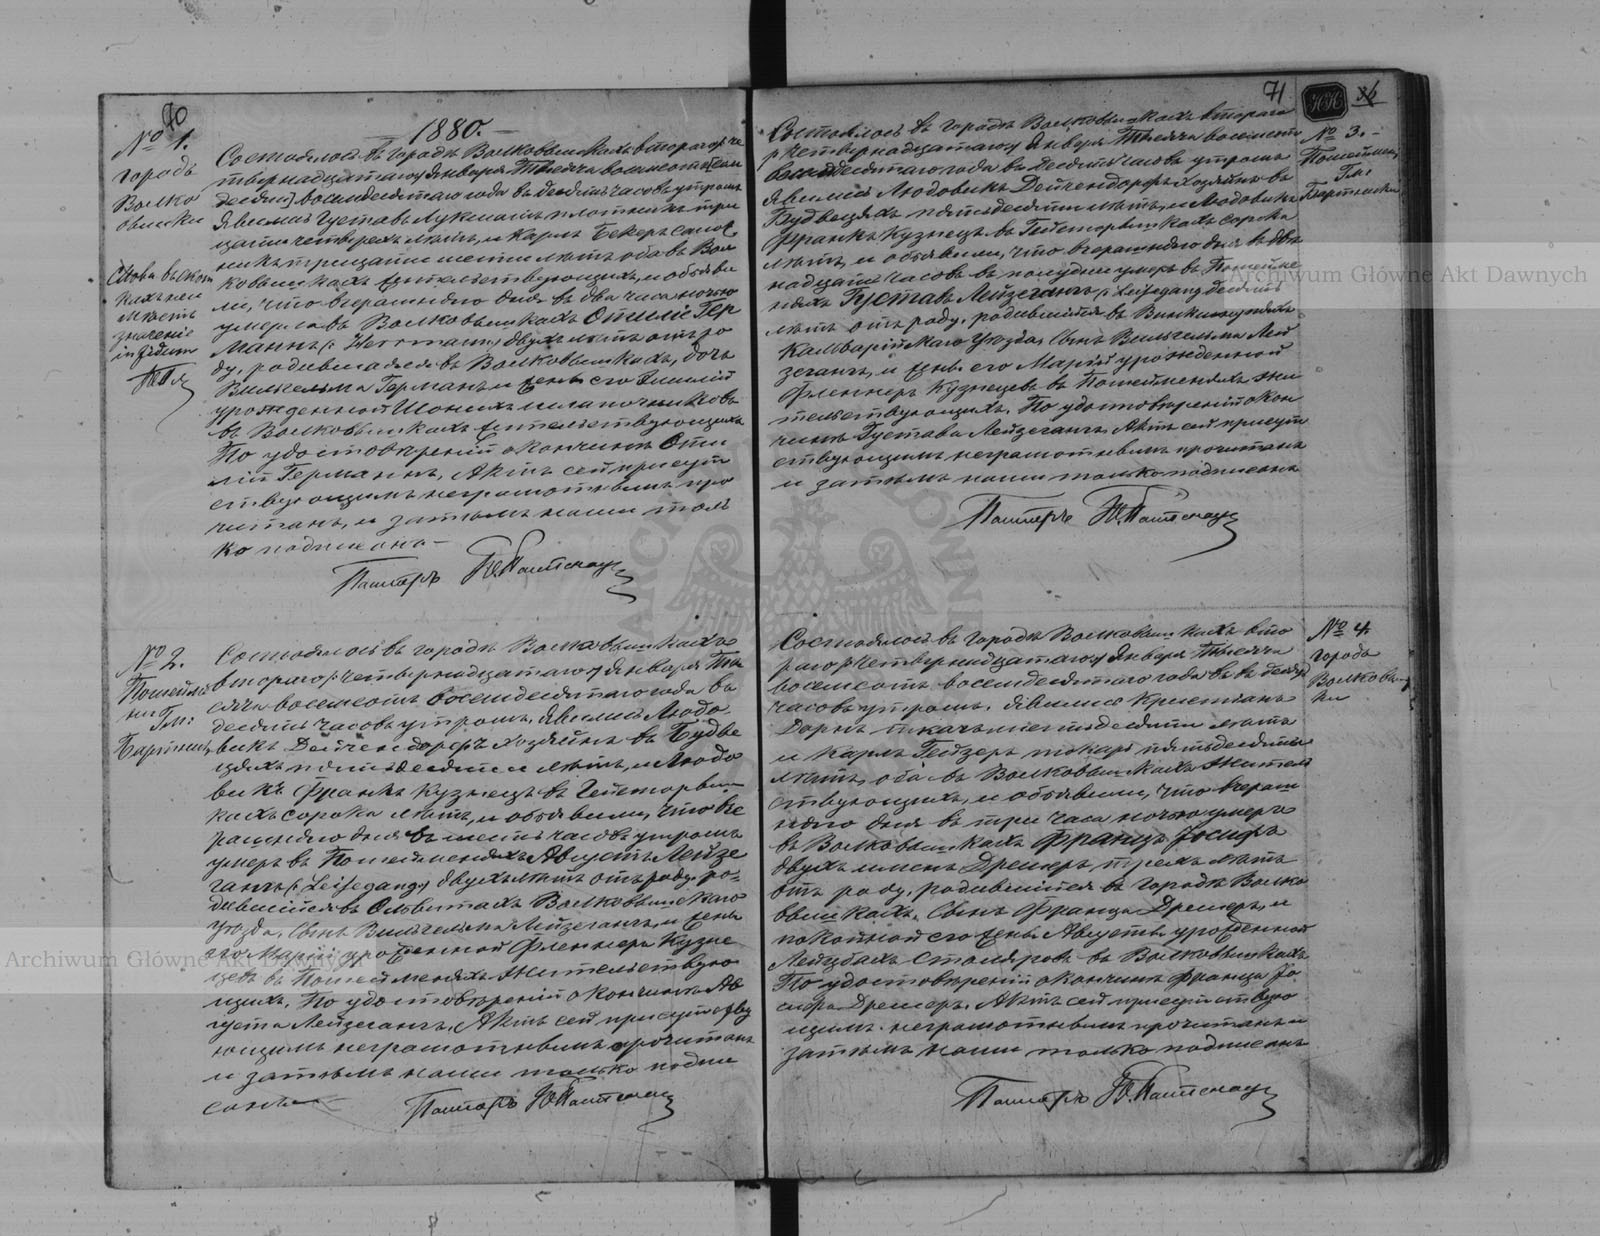 70
1880.
№ 1.
городъ
Волко
вишки
Слова въ скоб
кахъ не
имѣетъ
значенія
in fidem
Состоялось въ городѣ Волковышкахъ втораго че
твернадцатаго Января Тысяча восемсотъ
восемдесятаго года въ десять часовъ утромъ
явились Густавъ Лукматъ плотникъ три
цати четверехъ лѣтъ, и Карлъ Бекеръ сапож
никъ трицати шести лѣтъ оба въ Вол
ковышкахъ жительствующихъ, и объяви
ли, что вчерашняго дня въ два часа ночью
умерла въ Волковышкахъ Отилія Гер
маннъ (: Herrmann :) двухъ лѣтъ отъ ро
ду, родившаяся въ Волковышкахъ, дочь
Вильгельма Германъ и жены его Эмилій
урожденной Шонихъ
въ Волковышкахъ жительствующихъ
По удостовѣреній о кончинѣ Оти
лій Германнъ, Актъ сей присут
ствующимъ неграмотнымъ про
читанъ, и затѣмъ нами толь
ко подписанъ
Пасторъ
№ 2.
Пошеймѣ
ни
Гм:
Бартники
Состоялось въ городѣ Волковышкахъ
втораго (: четвернадцатаго :) Января Ты
сяча восемсотъ восемдесятаго года въ
десять часовъ утромъ, явились Людо
викъ Дейчендорфъ хозяинъ въ Будве
цяхъ пятьдесяти лѣтъ, и Людо
викъ Франкъ Кузнецъ въ Гейсторвиш
кахъ сорока лѣтъ, и объявили, что вче
рашняго дня въ шесть часовъ утромъ
умеръ въ Пошейменяхъ Августъ Лейзе
гангъ (: Leisegang :) двухъ лѣтъ отъ роду, ро
дившійся въ Ольвитахъ Волковышскаго
уѣзда, сынъ Вильгельма Лейзегангъ, и жены
его Марій урожденной Фленнеръ Кузне
цевъ въ Пошейменяхъ жительствую
щихъ. По удостовѣреній о кончинѣ Ав
густа Лейзегангъ, Актъ сей присутству
ющимъ неграмотнымъ прочитанъ
и затѣмъ нами только подпи
санъ
Пасторъ
71
№ 3.
Пошеймени
Гм:
Бартники
Состоялось въ городѣ Волковышкахъ втораго
(: четвернадцатаго :) Января Тысяча восемсотъ
восемдесятаго года въ десять часовъ утромъ
явились Людовикъ Дейчендорфъ хозяинъ въ
Будвецяхъ пятьдесяти лѣтъ, и Людовикъ
Франкъ Кузнецъ въ Гейсторвишкахъ сорока
лѣтъ, и объявили, что вчерашняго дня въ две
надцать часовъ въ полудни умеръ въ Пошейме
няхъ Густавъ Лейзегангъ (: Leisegang :) десять
лѣтъ отъ роду, родившійся въ
Калварійскаго уѣзда, сынъ Вильгельма Лей
зегангъ, и жены его Марій урожденной
Фленнеръ Кузнецевъ въ Пошейменяхъ жи
тельствующихъ. По удостовѣреній о кон
чинѣ Густава Лейзегангъ, Актъ сей присут
ствующимъ неграмотнымъ прочитанъ
и затѣмъ нами только подписанъ
Пасторъ
№ 4.
города
Волковыш
ки
Состоялось въ городѣ Волковышкахъ вто
раго (: четвернадцатаго :) Января Тысяча
восемсотъ восемдесятаго года въ десять
часовъ утромъ, явились Крыстіанъ
Дорнъ ткачъ шестьдесяти лѣтъ
и Карлъ Гейзеръ токарь пятьдесяти
лѣтъ, оба въ Волковышкахъ житель
ствующихъ, и объявили, что вчераш
няго дня въ три часа ночью умеръ
въ Волковышкахъ Францъ Іосифъ
двухъ именъ Дреперъ, трехъ лѣтъ
отъ роду, родившійся въ городѣ Волко
вышкахъ, сынъ Франца Дреперъ, и
покойной его жены Августы урожденной
Лейцбахъ столяровъ въ Волковышкахъ
По удостовѣреній о кончинѣ Франца Іо
сифа Дреперъ, Актъ сей присутствую
щимъ неграмотнымъ прочитанъ и
затѣмъ нами только подписанъ
Пасторъ
Archiwum Główne Akt Dawnych
Archiwum Główne Akt Dawnych